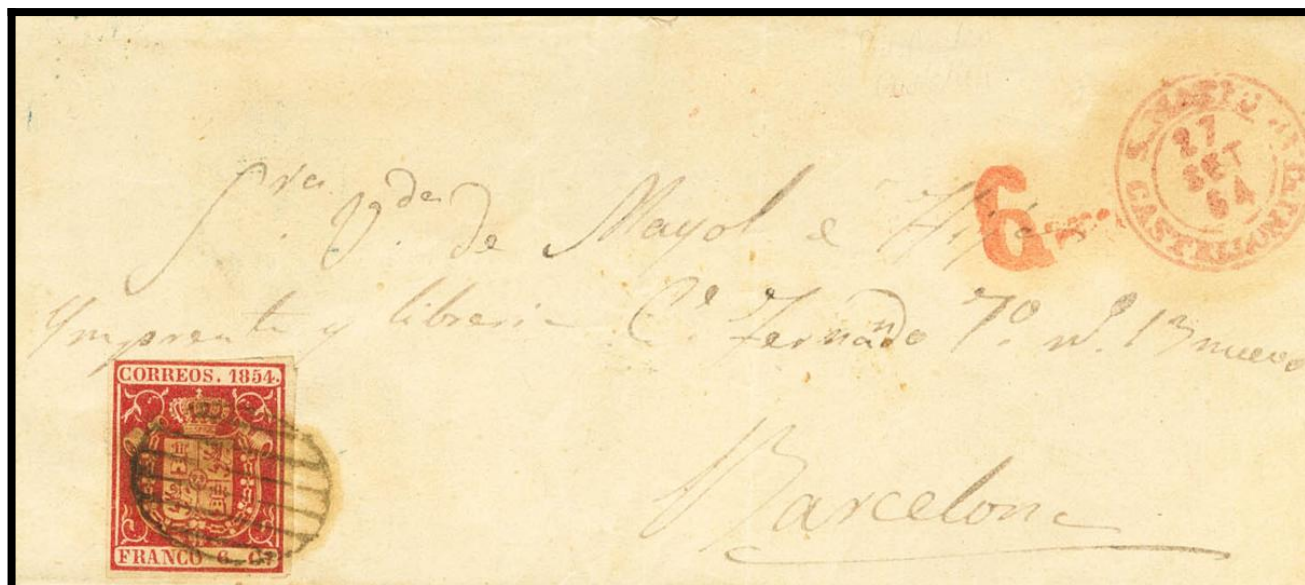 S. MATEO
27
SET
54
CASTELLON
6
Sra. V.da de Mayol e Hijo
Ymprenta y libreria C.e Fernando 7.o n.o 13 nuevo
CORREOS. 1854.
FRANCO 6. Cs.
Barcelona